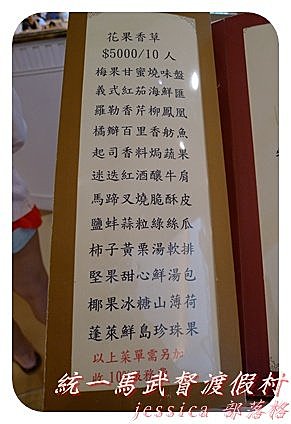 花果香草
$5000/10人
梅果甘蜜燒味盤
義式紅茄海鮮匯
羅勒香芹柳鳳凰
橘瓣百里香舫魚
起司香料焗蔬果
迷迭紅酒釀牛肩
馬蹄叉燒脆酥皮
鹽蚌蒜粒綠絲瓜
柿子黃栗湯軟排
堅果甜心鮮湯包
椰果冰糖山薄荷
蓬萊鮮島珍珠果
以上菜單需另加
收10%服務費
統一馬武督渡假村
jessica 部落格